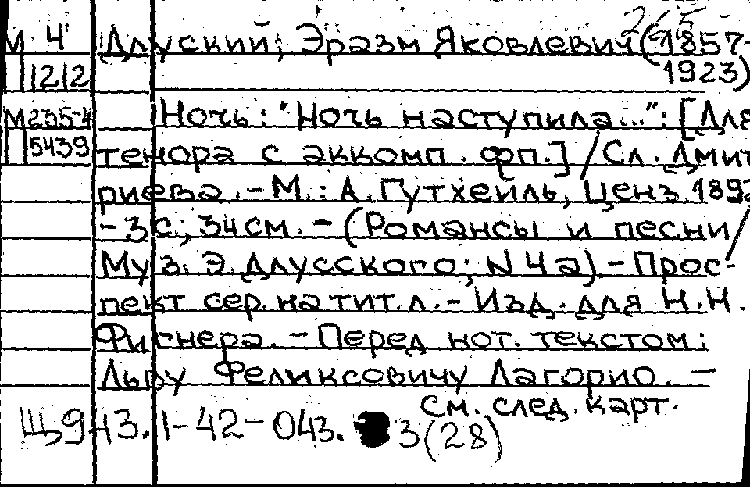 265
М 4 Длуский, Эразм Яковлевич (1857-
1212 1923)
М235-4 Ночь: "Ночь наступила...": [Для
5439 тенора с аккомп. фп.] / Сл. Дмит
риева. - М.: А. Гутхейль, Ценз. 189
- 3 с.; 34 см. - (Романсы и песни /
Муз. Э. Длусского; N 4а) - Прос-
пект сер. на тит. л. - Изд. для Н.Н.
Фиснера. - Перед нот. текстом:
Льву Феликсовичу Лагорио. -
см. след. карт.
Щ943.1-42-043. 3(28)